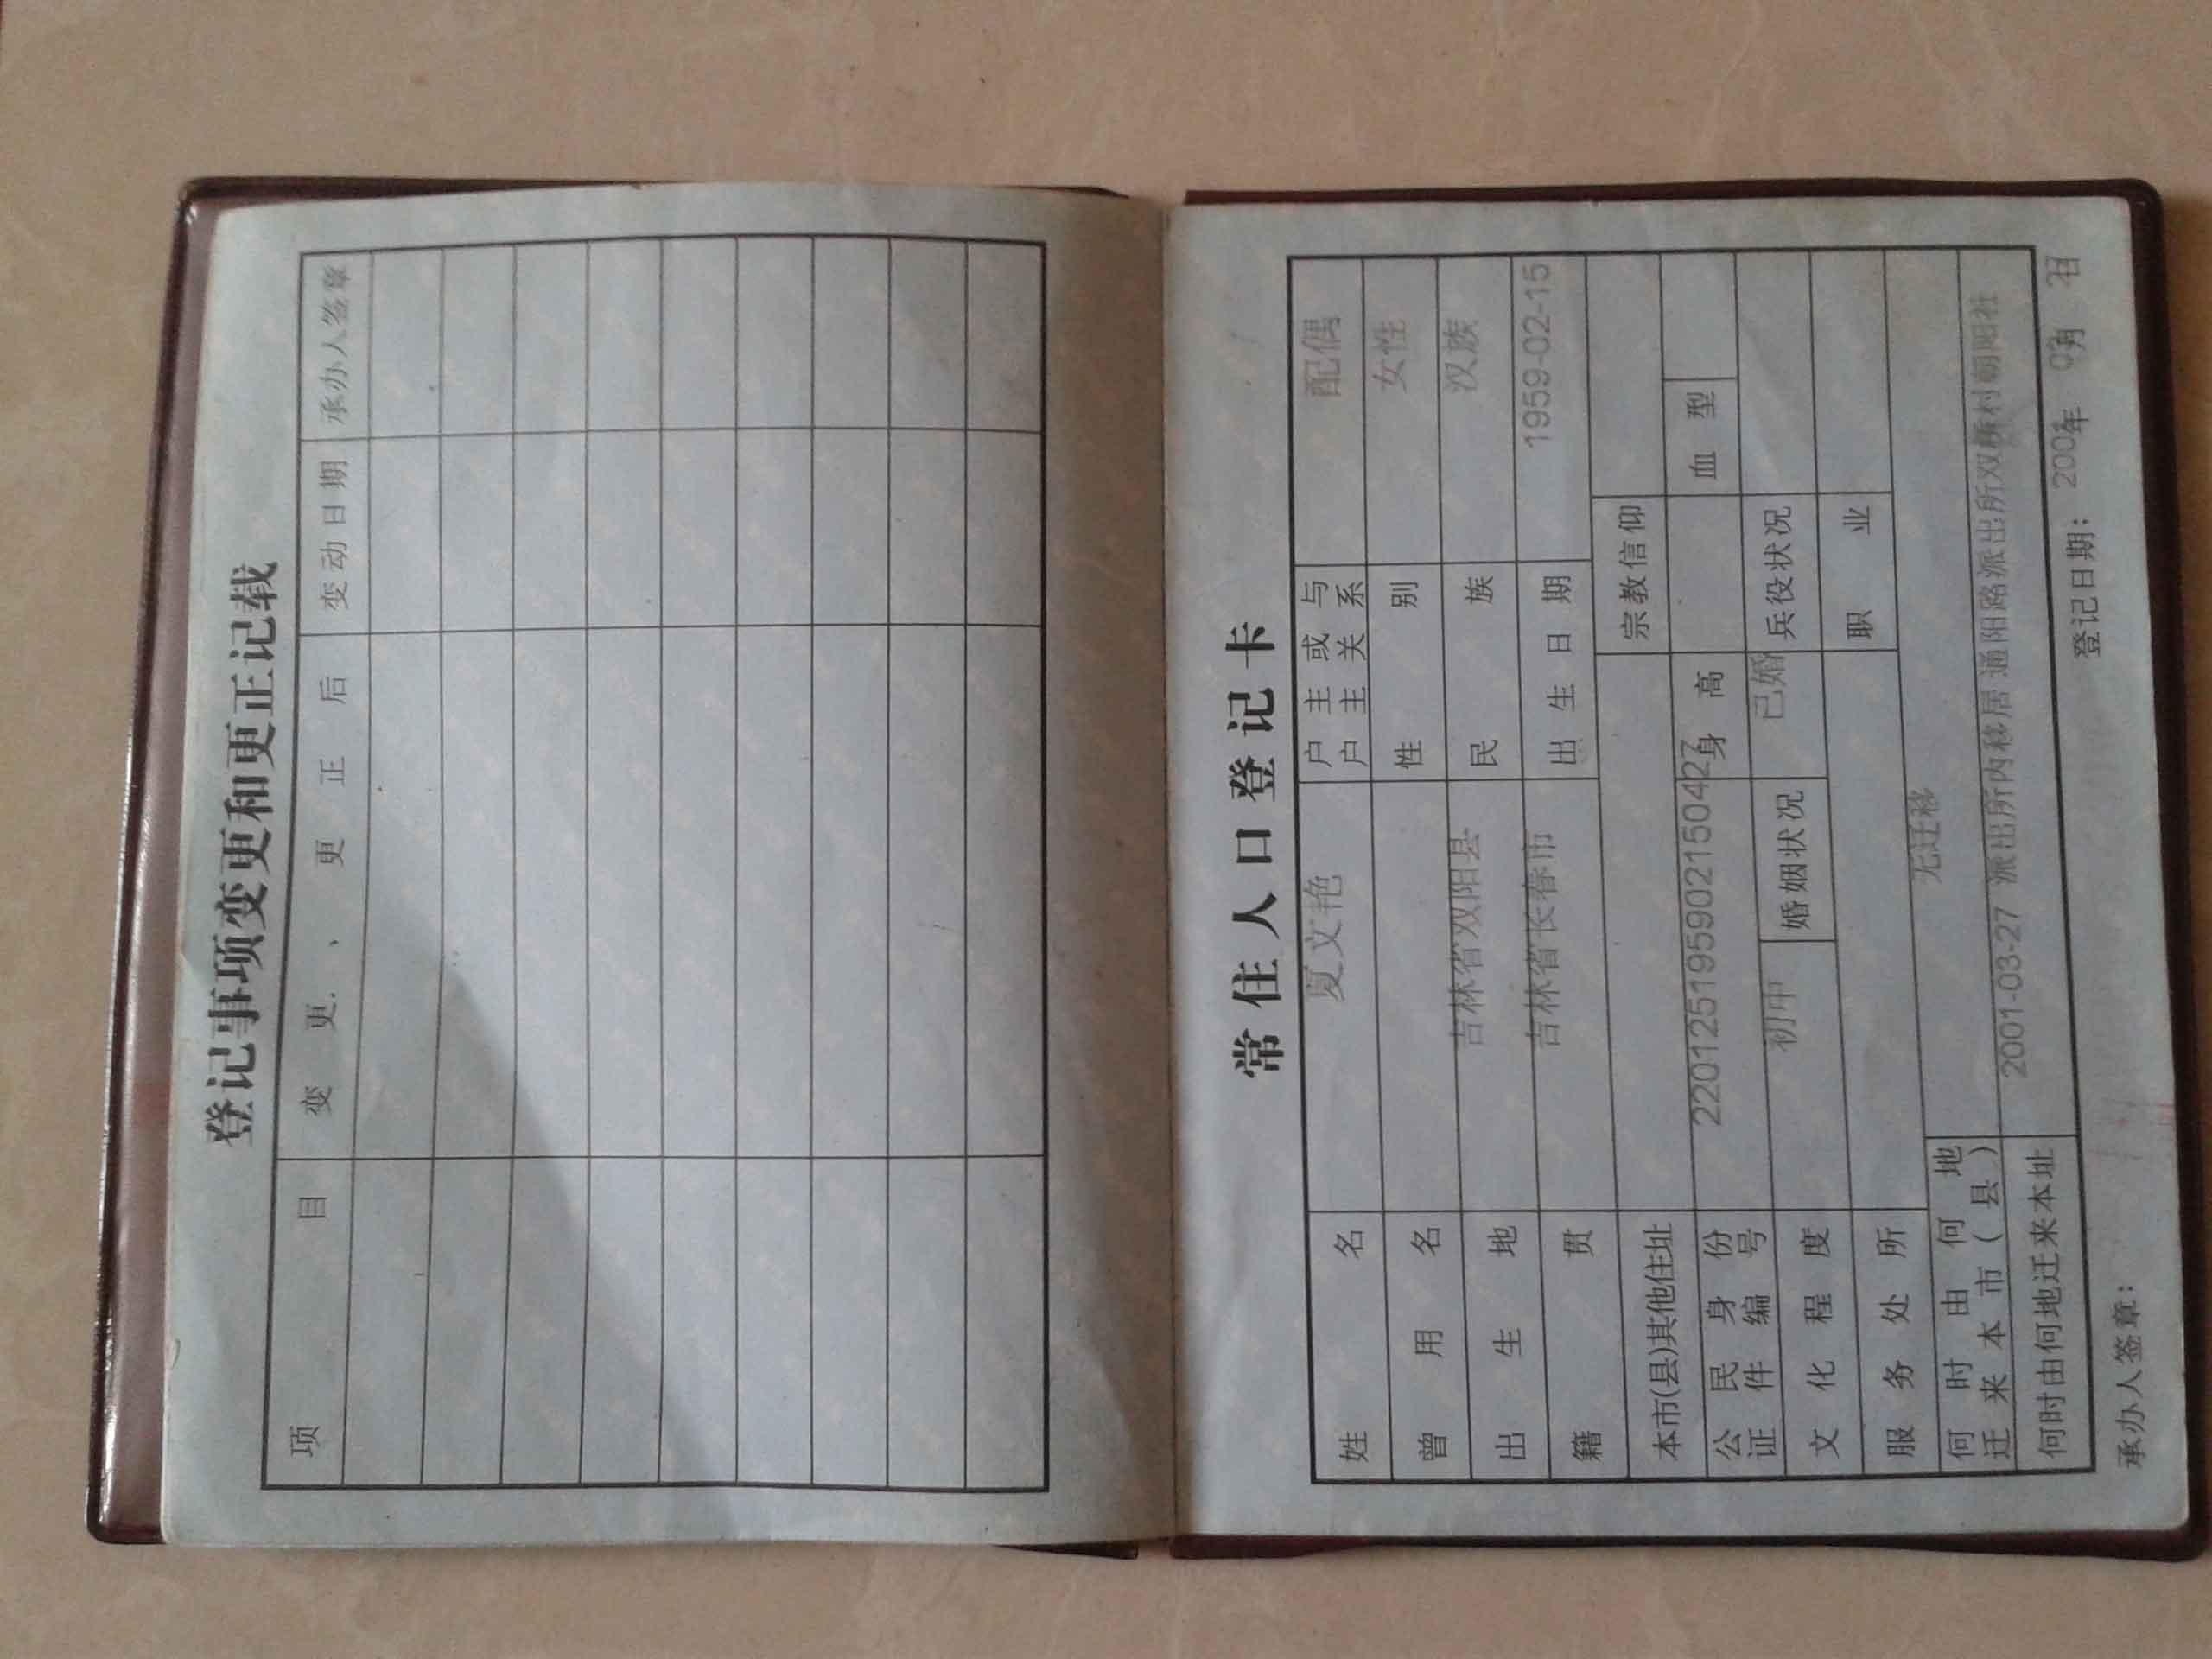 登记事项变更和更正记载
项 目 变 更 、 更 正 后 变动日期 承办人签章
常住人口登记卡
姓 名 夏文艳 户主或与户主关系 配偶
曾 用 名 性 别 女性
出 生 地 吉林省双阳县 民 族 汉族
籍 贯 吉林省长春市 出 生 日 期 1959-02-15
本市(县)其他住址 宗教信仰
公民身份证件编号 220125195902150427 身 高 血 型
文 化 程 度 初中 婚姻状况 已婚 兵役状况
服 务 处 所 职 业
何时由何地迁来本市(县) 无迁移
何时由何地迁来本址 2001-03-27 派出所内移居通阳路派出所双桥村朝阳社
承办人签章: 登记日期: 2001年 03月 日